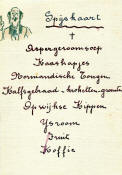 Spijskaart
Aspergeroomsoep
Kaashapjes
Normandische Tongen
Kalfsgebraad - kroketten - groenten
Opwijkse Kippen
Ysroom
Fruit
Koffie